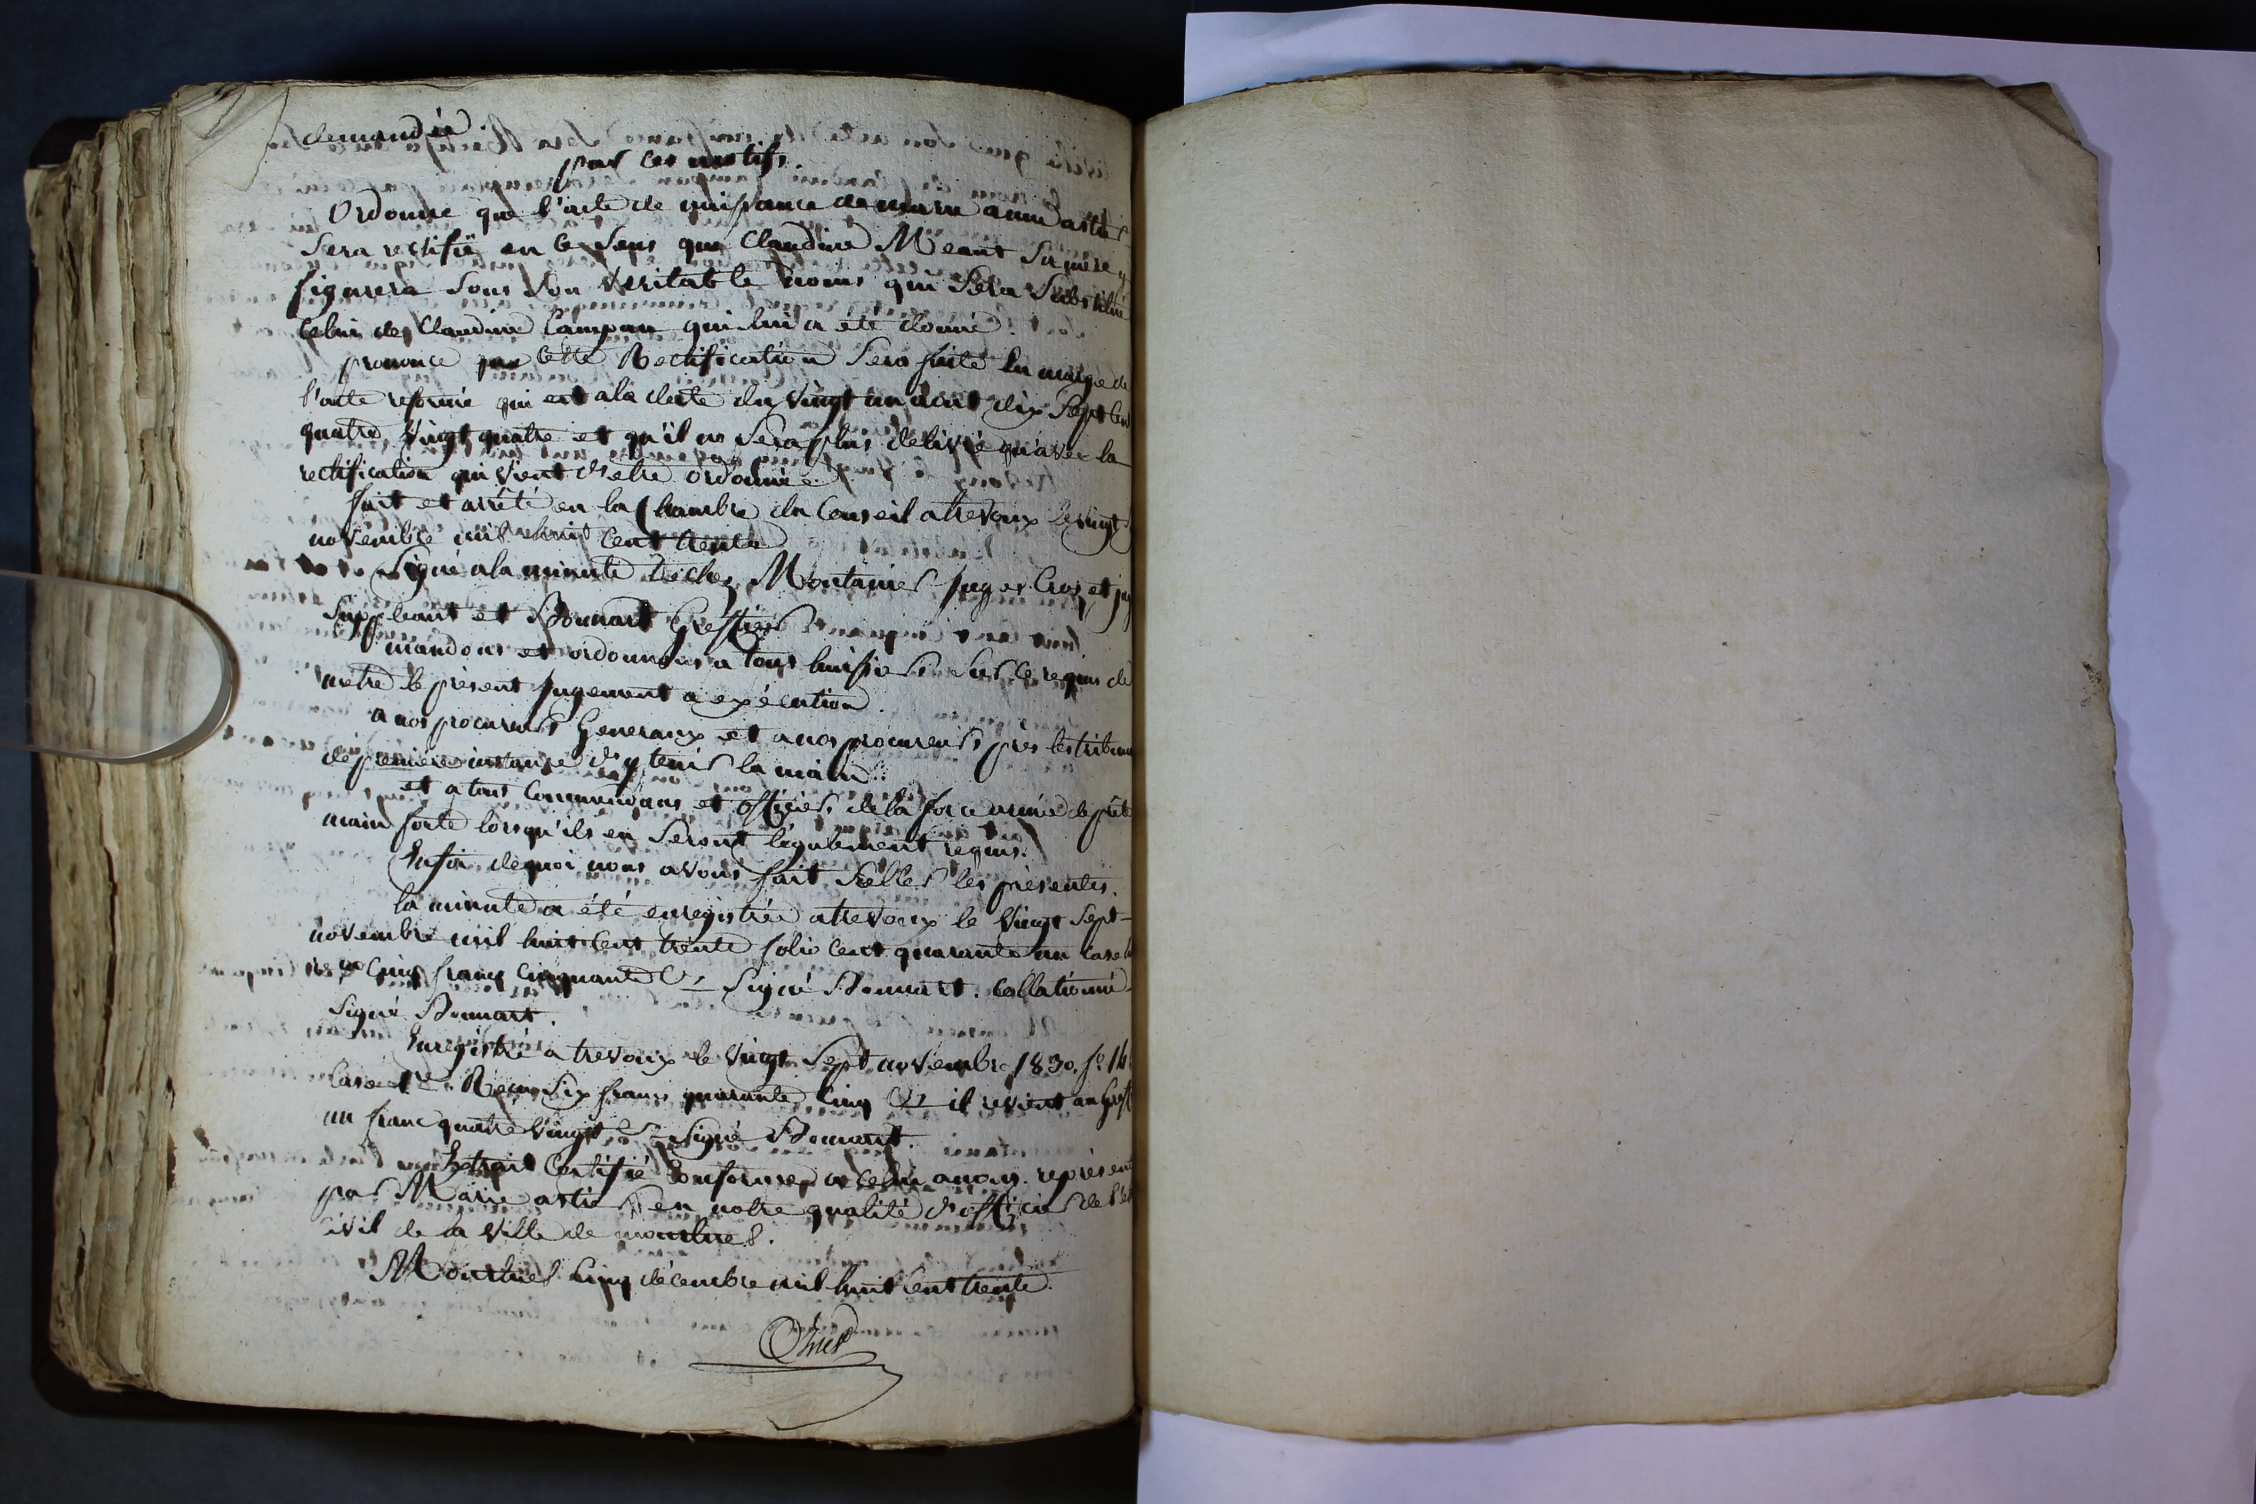 demandée
par ces motifs.
Ordonne que l'acte de naissance de marie anne astier
sera rectifié en ce sens que Claudine Meant sa mere y
figurera sous son veritable noms qui sera substitué
celui de Claudine Campan qui lui a eté donné.
prononce que cette Rectification sera faite en marge de
l'acte reformé qui est a la date du vingt un aout dix sept cent
quatre vingt quatre et qu'il ne sera plus delivré qu'avec la
rectification qui vient d'etre ordonnée.
fait et arrêté en la Chambre du Conseil a trevoux le vingt
novembre mil huit cent trente
Signé a la minute Montanier juges Cros et
Suppleant et Bonnart Greffier
mandons et ordonnons a tous huissiers sur ce requis de
metre le present jugement a exécution.
a nos procureurs Generaux et a nos procureurs pres les tribunaux
de premiere instance d'y tenir la main.
et a tous Commandans et officiers de la force armée de prêter
main forte lorsqu'ils en seront légalement requis.
Enfoi dequoi nous avons fait sceller les présentes.
la minute a été enregistrée a trevoux le vingt sept
novembre mil huit cent trente folio cent quarante un case
cinq francs cinquante C. Signé Bonnart. Collationné
Signé Bonnart.
Enregistré a trevoux le vingt sept novembre 1830. f° 14
Case Reçu six francs quarante cinq C. il revient au Greffe
un franc quatre vingt C. Signé Bonnart.
Extrait Certifié Conforme a celui a nous représenté
par Marie astier en notre qualité d'officier de l'etat
civil de la ville de montluel.
Montluel cinq décembre mil huit cent trente.